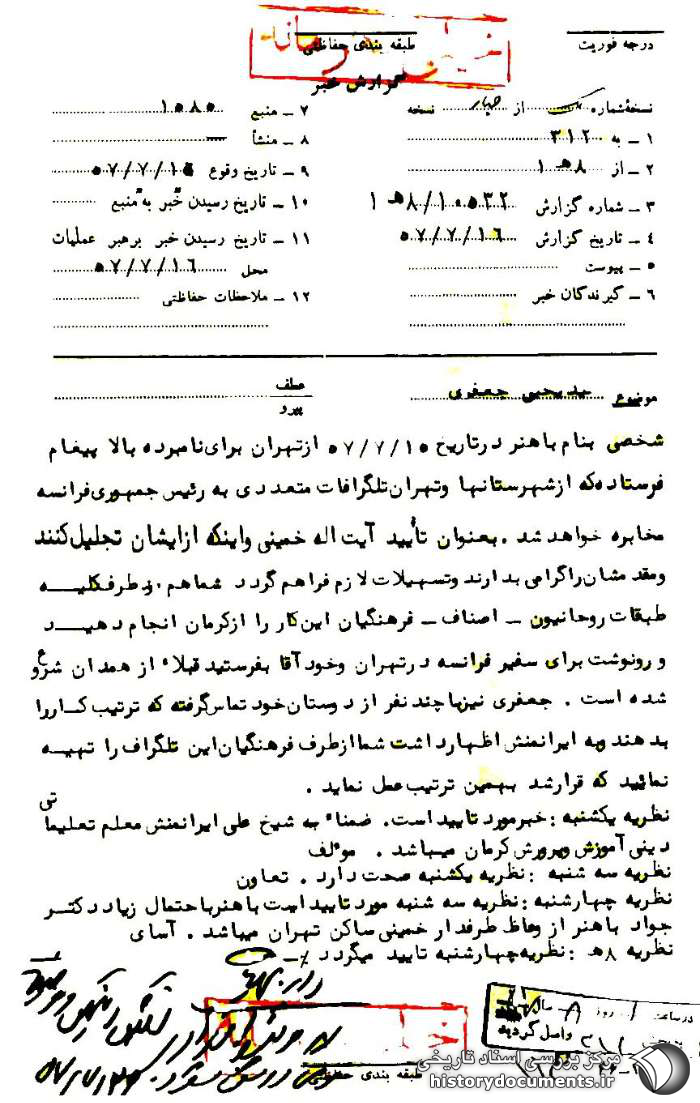 درجه فوریت
طبقه بندی حفاظتی
گزارش خبر
نسخهٔ شماره یک از چهار نسخه
۱ ـ به ۳۱۲
۲ ـ از ۸ هـ ۱
۳ ـ شماره گزارش ۱۰۵۳۲/ ۸ هـ ۱
۴ ـ تاریخ گزارش ۵۷/۷/۱۶
۵ ـ پیوست
۶ ـ گیرندگان خبر
۷ ـ منبع ۱۰۸۵
۸ ـ منشأ
۹ ـ تاریخ وقوع
۱۰ ـ تاریخ رسیدن خبر به منبع
۱۱ ـ تاریخ رسیدن خبر برهبر عملیات
محل ۵۷/۷/۱۶
۱۲ ـ ملاحظات حفاظتی
موضوع سیدیحیی جعفری
عطف
پیرو
شخصی بنام باهنر درتاریخ ۵۷/۷/۱۵ ازتهران برای نامبرده بالا پیغام
فرستاده که ازشهرستانها وتهران تلگرافات متعددی به رئیس جمهوری فرانسه
مخابره خواهد شد . بعنوان تأیید آیت اله خمینی واینکه ازایشان تجلیل کنند
ومقدمشان راگرامی بدارند وتسهیلات لازم فراهم گردد شماهم ازطرف کلیه
طبقات روحانیون ـ اصناف ـ فرهنگیان این کار را ازکرمان انجام دهید
و رونوشت برای سفیر فرانسه درتهران وخود آقا بفرستید قبلاً از همدان شروع
شده است . جعفری نیزبا چند نفر از دوستان خود تماس گرفته که ترتیب کاررا
بدهند وبه ایرانمنش اظهارداشت شما ازطرف فرهنگیان این تلگراف را تهیه
نمائید که قرارشد بهمین ترتیب عمل نماید .
نظریه یکشنبه : خبرمورد تاییداست. ضمناً به شیخ علی ایرانمنش معلم تعلیماتی
دینی آموزش وپرورش کرمان میباشد . مؤلف
نظریه سه شنبه : نظریه یکشنبه صحت دارد . تعاون
نظریه چهارشنبه : نظریه سه شنبه مورد تاییداست باهنرباحتمال زیاد دکتر
جواد باهنر از وعاظ طرفدار خمینی ساکن تهران میباشد . آسای
نظریه ۸ هـ : نظریه چهارشنبه تایید میگردد
طبقه بندی حفاظتی
درساعت روز
واصل گردید
مرکز بررسی اسناد تاریخی
historydocuments.ir